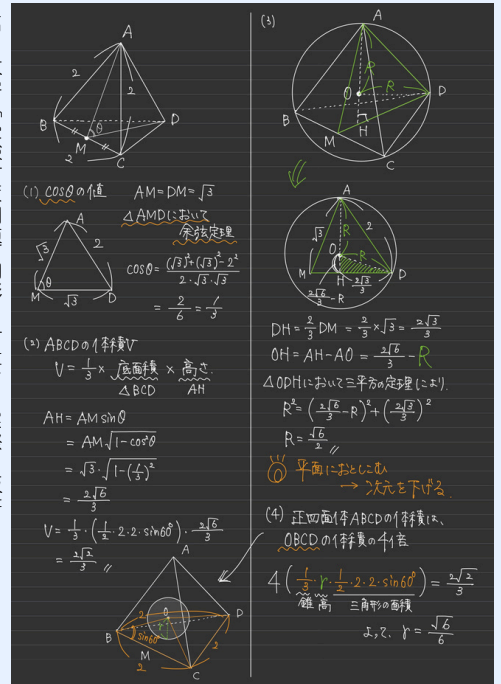 A
2
2
B
θ
D
M
2
C
(1) cosθの値 AM=DM=√3
△AMDにおいて
余弦定理
A
√3
2
θ
M
√3
D
cosθ = ((√3)²+(√3)²-2²)/(2·√3·√3)
= 2/6 = 1/3
(2) ABCDの体積V
V = 1/3 × 底面積 × 高さ.
△BCD AH
AH = AM sinθ
= AM√(1-cos²θ)
= √3·√(1-(1/3)²)
= 2√6/3
V = 1/3·(1/2·2·2·sin60°)·2√6/3
= 2√2/3 〃
A
2
O
r
D
B
sin60°
M
2
2
C
(3)
A
R
O
R
D
B
H
M
C
A
√3
R
2
O
R
M
H
D
2√6/3-R
2√3/3
DH = 2/3 DM = 2/3×√3 = 2√3/3
OH = AH-AO = 2√6/3 - R
△ODHにおいて三平方の定理により.
R² = (2√6/3-R)²+(2√3/3)²
R = √6/2 〃
平面におとしこむ
→ 次元を下げる.
(4) 正四面体ABCDの体積は、
OBCDの体積の4倍
4(1/3·r·1/2·2·2·sin60°) = 2√2/3
錐 高 三角形の面積
よって、r = √6/6